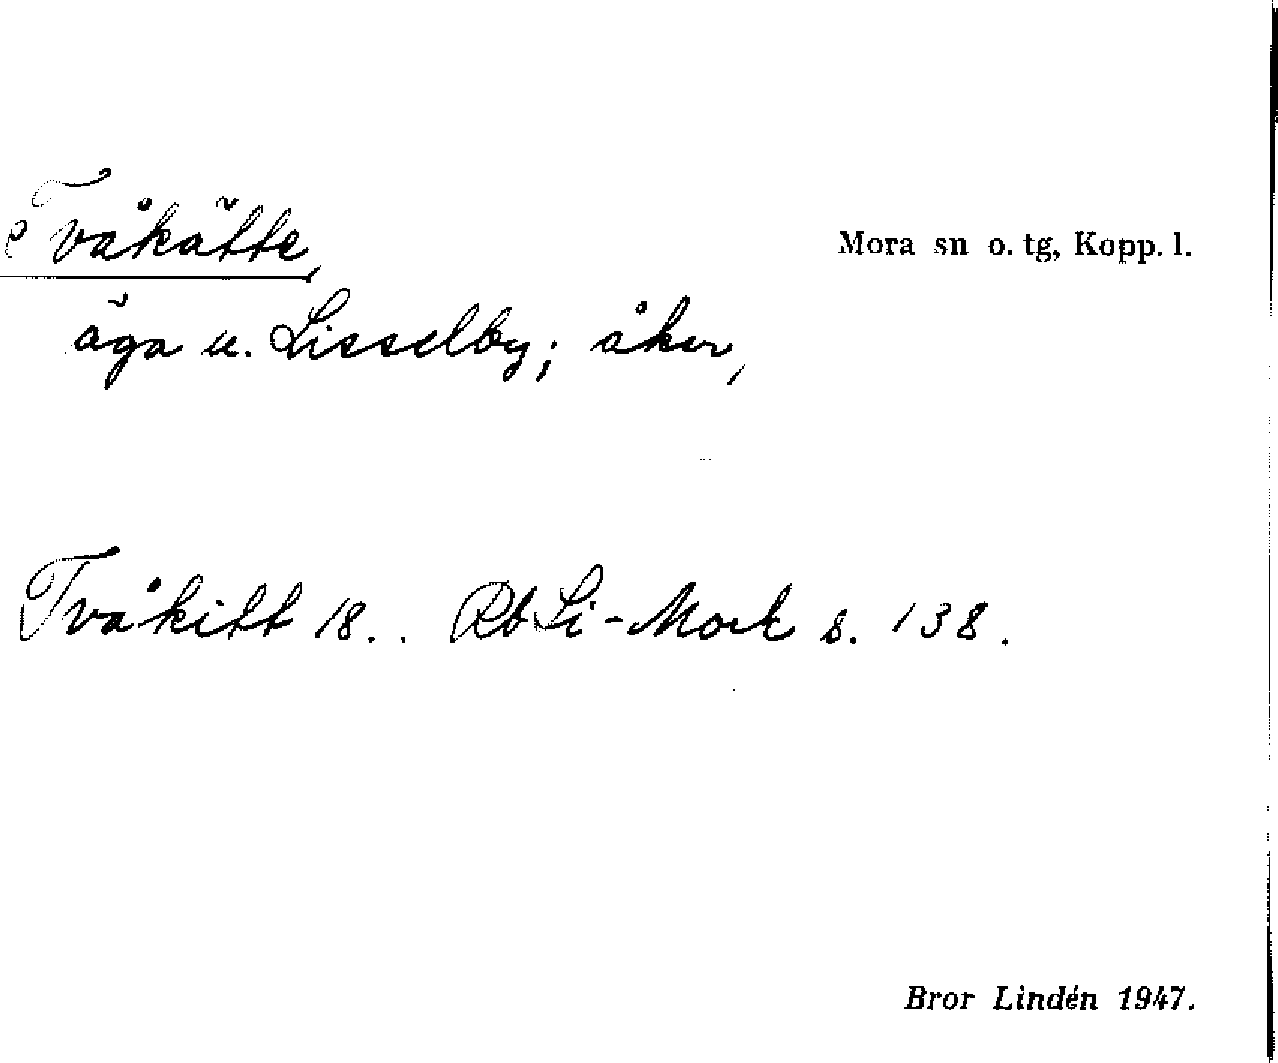 Tvåkätte, Mora sn o. tg, Kopp. l.
äga u. Lisselby; åker,
Tvåkitt 18.. Rb Li-Mork s. 138.
Bror Lindén 1947.